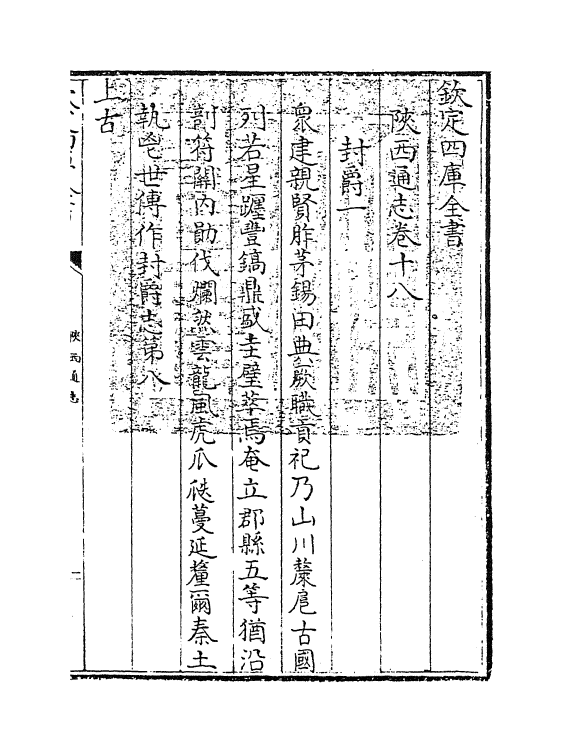 欽定四庫全書
陝西通志卷十八
封爵一
衆建親賢胙茅錫田典厥職貢祀乃山川藂扈古國
列若星躔豐鎬鼎盛圭璧萃焉奄立郡縣五等猶沿
剖符關内勛伐爛然雲龍風虎瓜瓞蔓延釐爾秦土
執鬯世傳作封爵志第八
上古
陝西通志